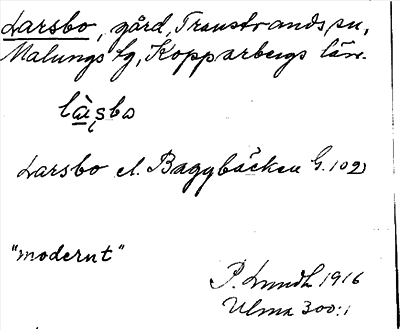 Larsbo, gård, Transtrands sn,
Malungs tg, Kopparbergs län.
Larsbo el. Baggbäcken G.102)
"modernt"
P. Lundh 1916
Ulma 300:1